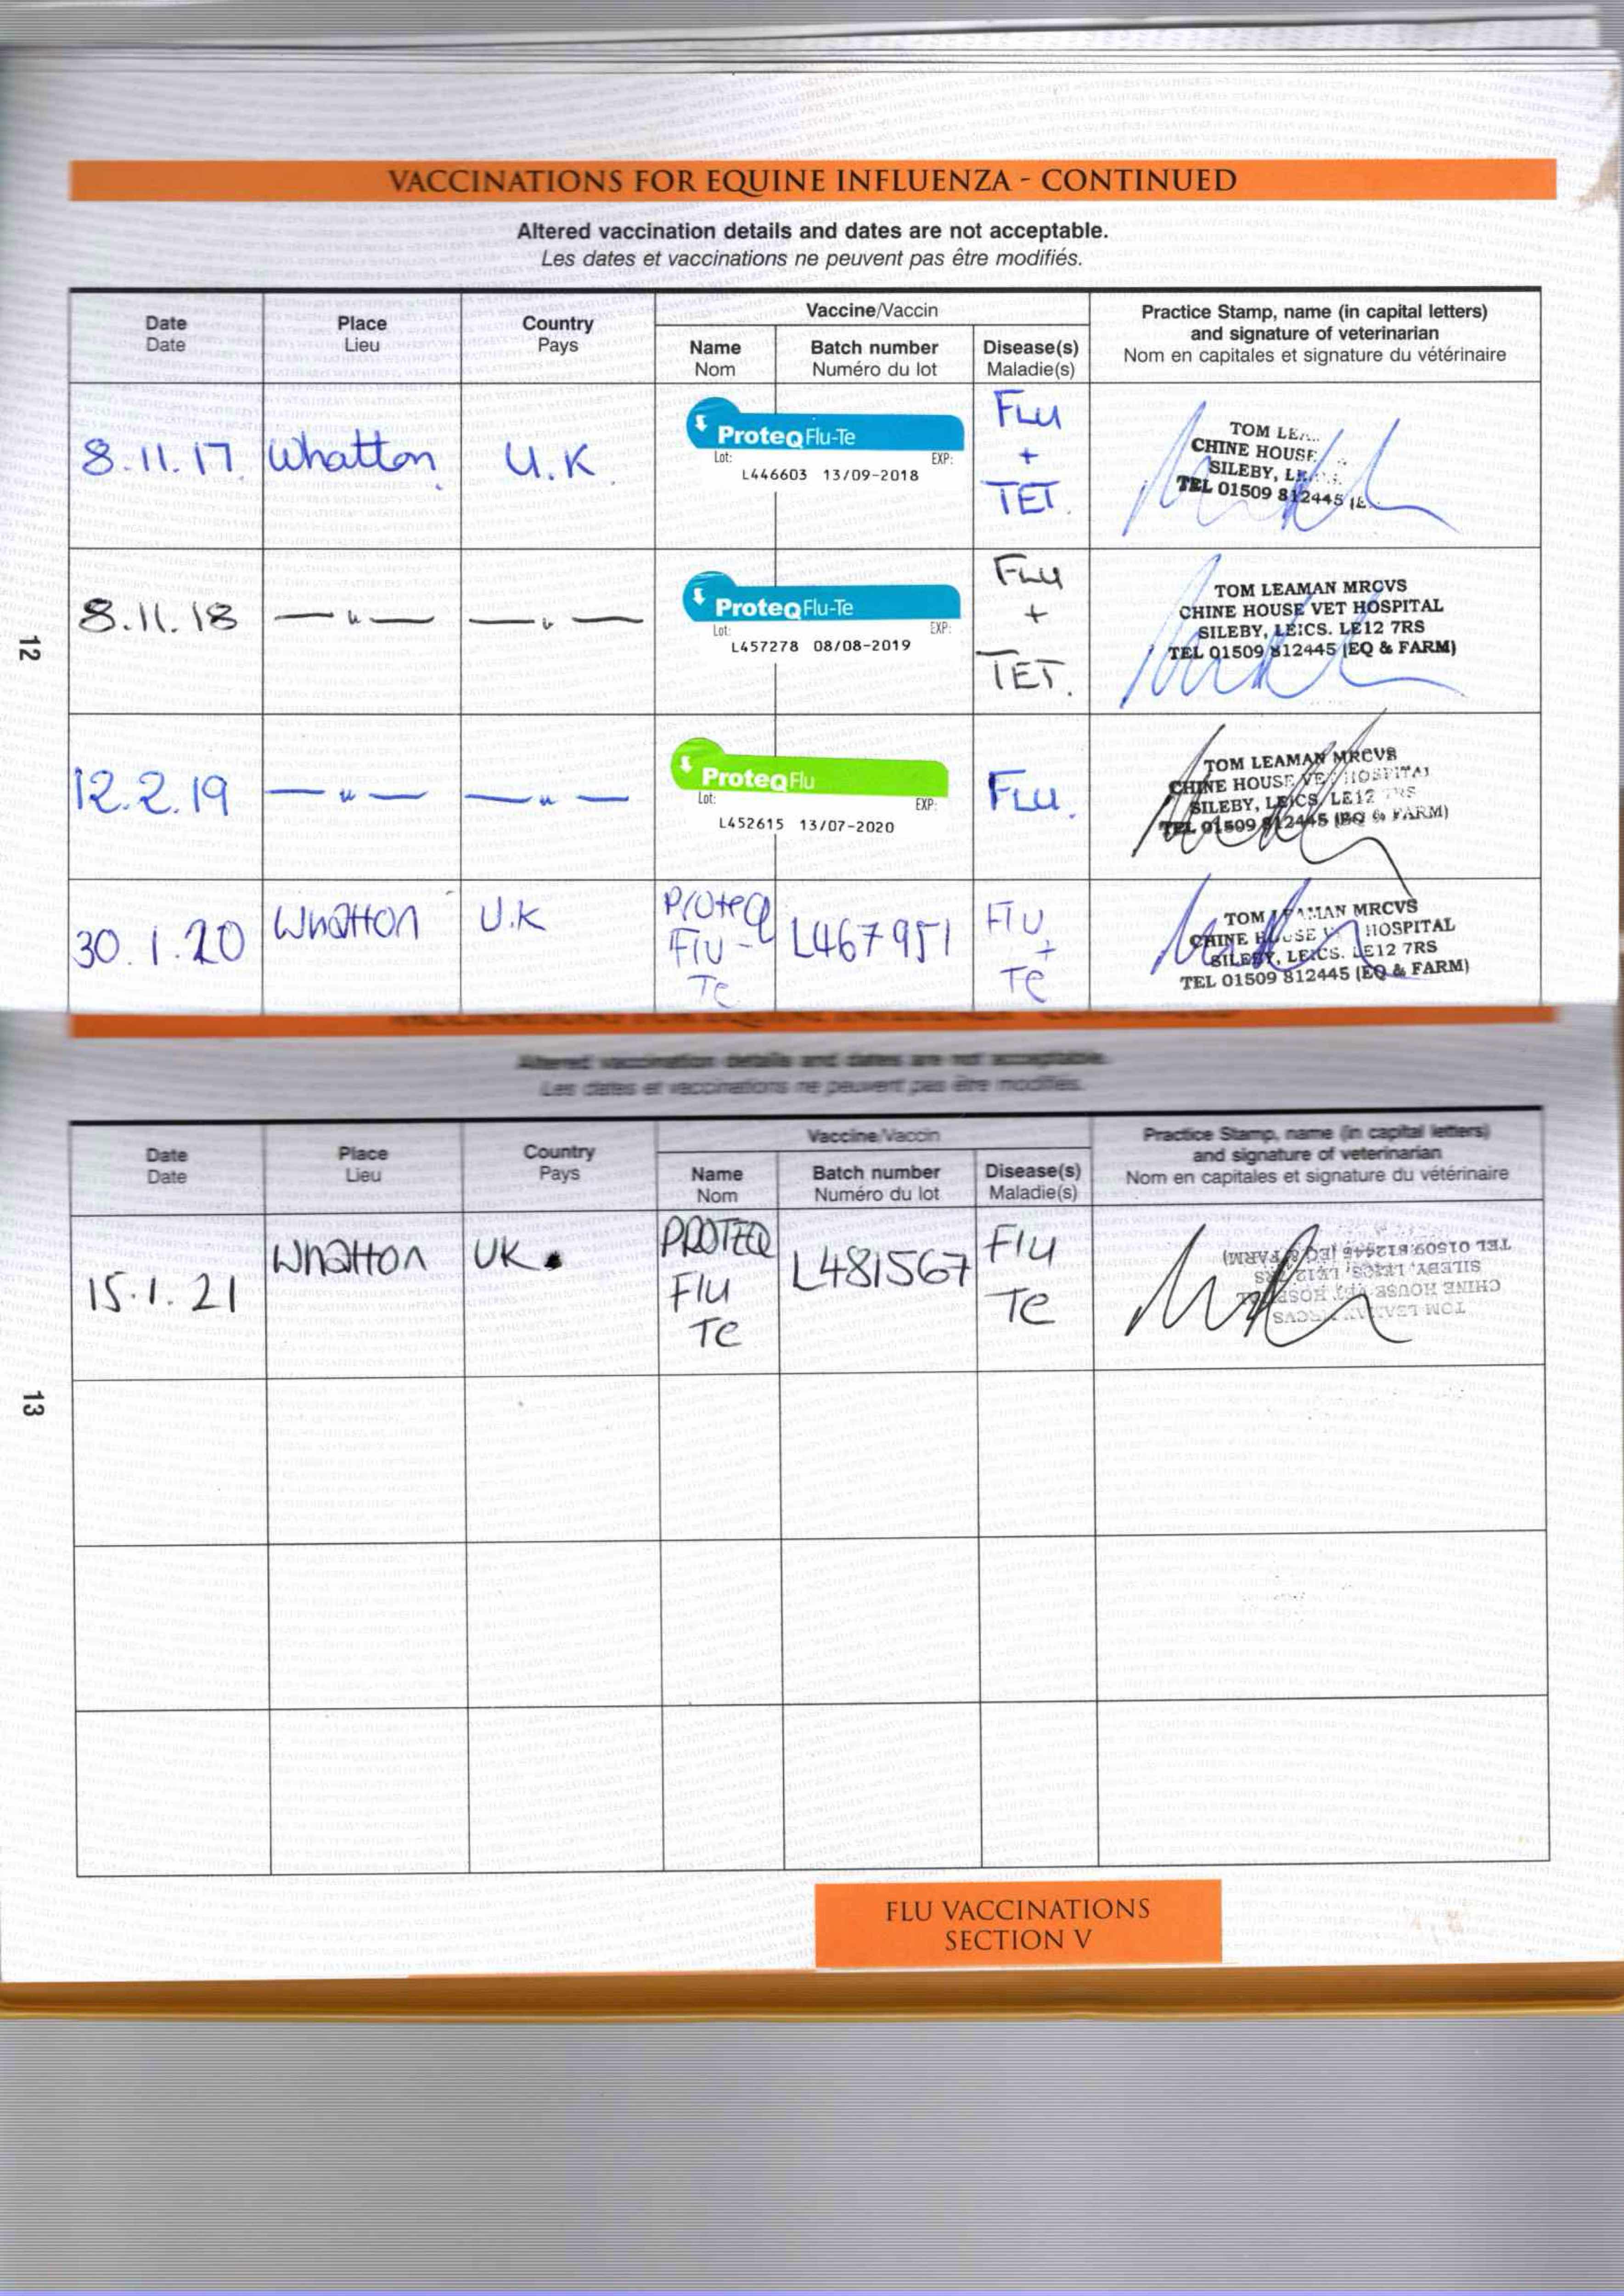 VACCINATIONS FOR EQUINE INFLUENZA - CONTINUED
Altered vaccination details and dates are not acceptable.
Les dates et vaccinations ne peuvent pas être modifiés.
Date
Date
Place
Lieu
Country
Pays
Vaccine/Vaccin
Name
Nom
Batch number
Numéro du lot
Disease(s)
Maladie(s)
Practice Stamp, name (in capital letters)
and signature of veterinarian
Nom en capitales et signature du vétérinaire
8.11.17 Whatton U.K
ProteqFlu-Te
Lot: EXP:
L446603 13/09-2018
FLU
+
TET.
TOM
CHINE HOUSE
SILEBY,
TEL 01509 812445
8.11.18 — " — — " —
ProteqFlu-Te
Lot: EXP:
L457278 08/08-2019
FLU
+
TET.
TOM LEAMAN MRCVS
CHINE HOUSE VET HOSPITAL
SILEBY, LEICS. LE12 7RS
TEL 01509 812445 (EQ & FARM)
12.2.19 — " — — " —
ProteqFlu
Lot: EXP:
L452615 13/07-2020
FLU.
TOM LEAMAN MRCVS
CHINE HOUSE VET HOSPITAL
SILEBY, LEICS. LE12 7RS
TEL 01509 812445 (EQ & FARM)
30.1.20 Whatton U.K
Proteq
Flu-
Te
L467951
Flu
+
Te
TOM LEAMAN MRCVS
CHINE HOUSE VET HOSPITAL
SILEBY, LEICS. LE12 7RS
TEL 01509 812445 (EQ & FARM)
12
Altered vaccination details and dates are not acceptable.
Les dates et vaccinations ne peuvent pas être modifiés.
Date
Date
Place
Lieu
Country
Pays
Vaccine/Vaccin
Name
Nom
Batch number
Numéro du lot
Disease(s)
Maladie(s)
Practice Stamp, name (in capital letters)
and signature of veterinarian
Nom en capitales et signature du vétérinaire
15.1.21 Whatton UK.
PROTEQ
Flu
Te
L481567
Flu
Te
TOM LEAMAN MRCVS
CHINE HOUSE VET HOSPITAL
SILEBY, LEICS. LE12 7RS
TEL 01509 812445 (EQ & FARM)
13
FLU VACCINATIONS
SECTION V